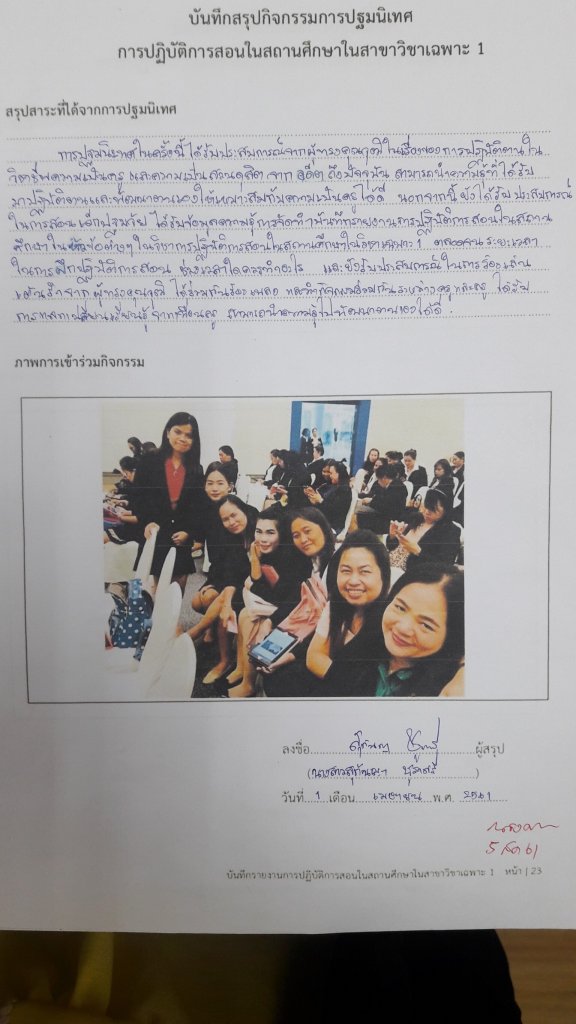 บันทึกสรุปกิจกรรมการปฐมนิเทศ
การปฏิบัติการสอนในสถานศึกษาในสาขาวิชาเฉพาะ 1
สรุปสาระที่ได้จากการปฐมนิเทศ
การปฐมนิเทศในครั้งนี้ ได้รับประสบการณ์จากผู้ทรงคุณวุฒิในเรื่องของการปฏิบัติตนใน
วิชาชีพความเป็นครู และความเป็นสวนดุสิต จาก อดีต ถึงปัจจุบัน สามารถนำความรู้ที่ได้รับ
มาปฏิบัติตนและพัฒนาตนเองให้เหมาะสมกับความเป็นครูได้ดี นอกจากนี้ยังได้รับ ประสบการณ์
ในการสอนเด็กปฐมวัย ได้รับข้อมูลความรู้การจัดทำบันทึกรายงานการปฏิบัติการสอนในสถาน
ศึกษาในหัวข้อต่างๆ ในวิชาการปฏิบัติการสอนในสถานศึกษาในวิชาเฉพาะ 1 ตลอดจนระยะเวลา
ในการฝึกปฏิบัติการสอน ช่วงเวลาใดควรทำอะไร และยังรับประสบการณ์ในการ
เต้นรำจากผู้ทรงคุณวุฒิ ได้ร่วมกันร้องเพลง และทำกิจกรรมร่วมกันระหว่างครูและครู ได้รับ
การแลกเปลี่ยนเรียนรู้จากเพื่อนครู สามารถนำความรู้ไปพัฒนาตนเองได้ดี.
ภาพการเข้าร่วมกิจกรรม
ลงชื่อ ผู้สรุป
(นางสาว )
วันที่ 1 เดือน เมษายน พ.ศ. 2561
5 61
บันทึกรายงานการปฏิบัติการสอนในสถานศึกษาในสาขาวิชาเฉพาะ 1 หน้า | 23